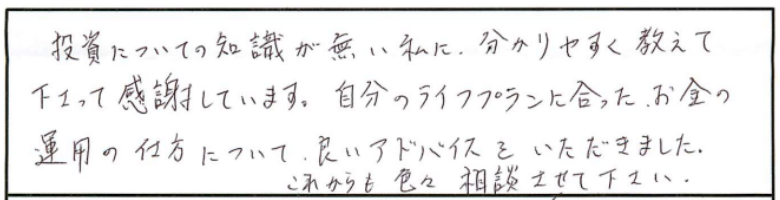 投資についての知識が無い私に、分かりやすく教えて
下さって感謝しています。自分のライフプランに合った、お金の
運用の仕方について、良いアドバイスをいただきました。
これからも色々相談させて下さい。